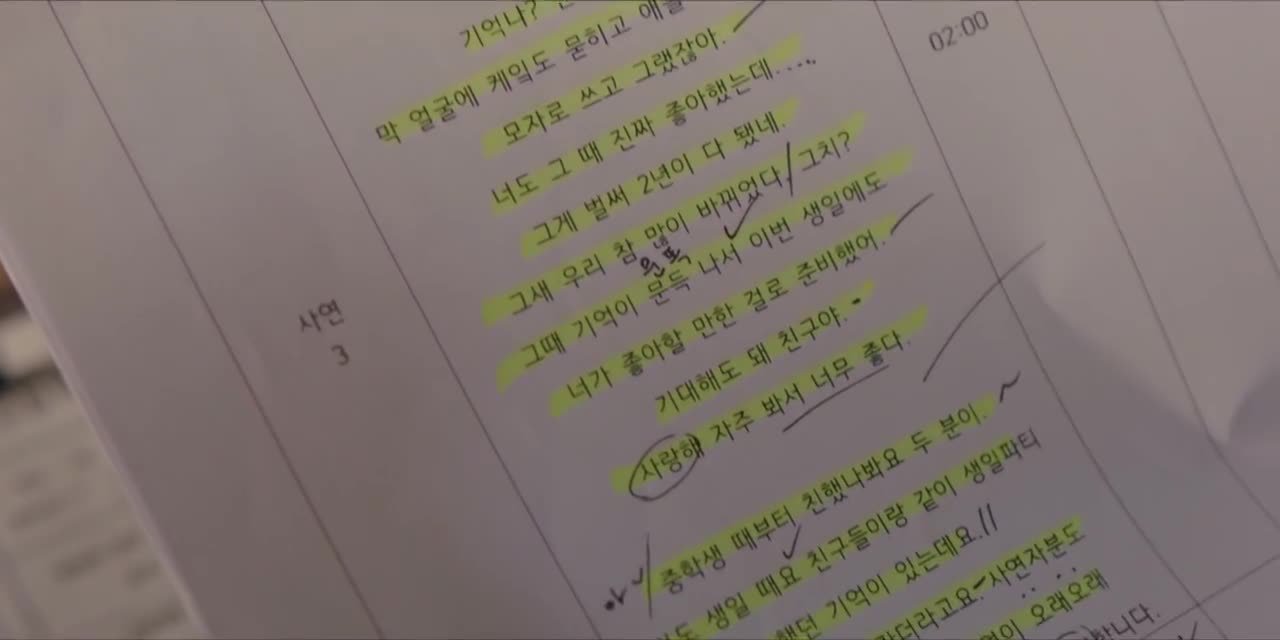 기억나?
막 얼굴에 케잌도 묻히고
모자로 쓰고 그랬잖아.
너도 그 때 진짜 좋아했는데....
그게 벌써 2년이 다 됐네.
그새 우리 참 많이 바뀌었다. 그치?
그때 기억이 문득 나서 이번 생일에도
너가 좋아할 만한 걸로 준비했어.
기대해도 돼 친구야.
사랑해 자주 봐서 너무 좋다.
중학생 때부터 친했나봐요 두 분이.
생일 때요 친구들이랑 같이 생일파티
했던 기억이 있는데요.
사연자분도
오래오래
02:00
사연
3